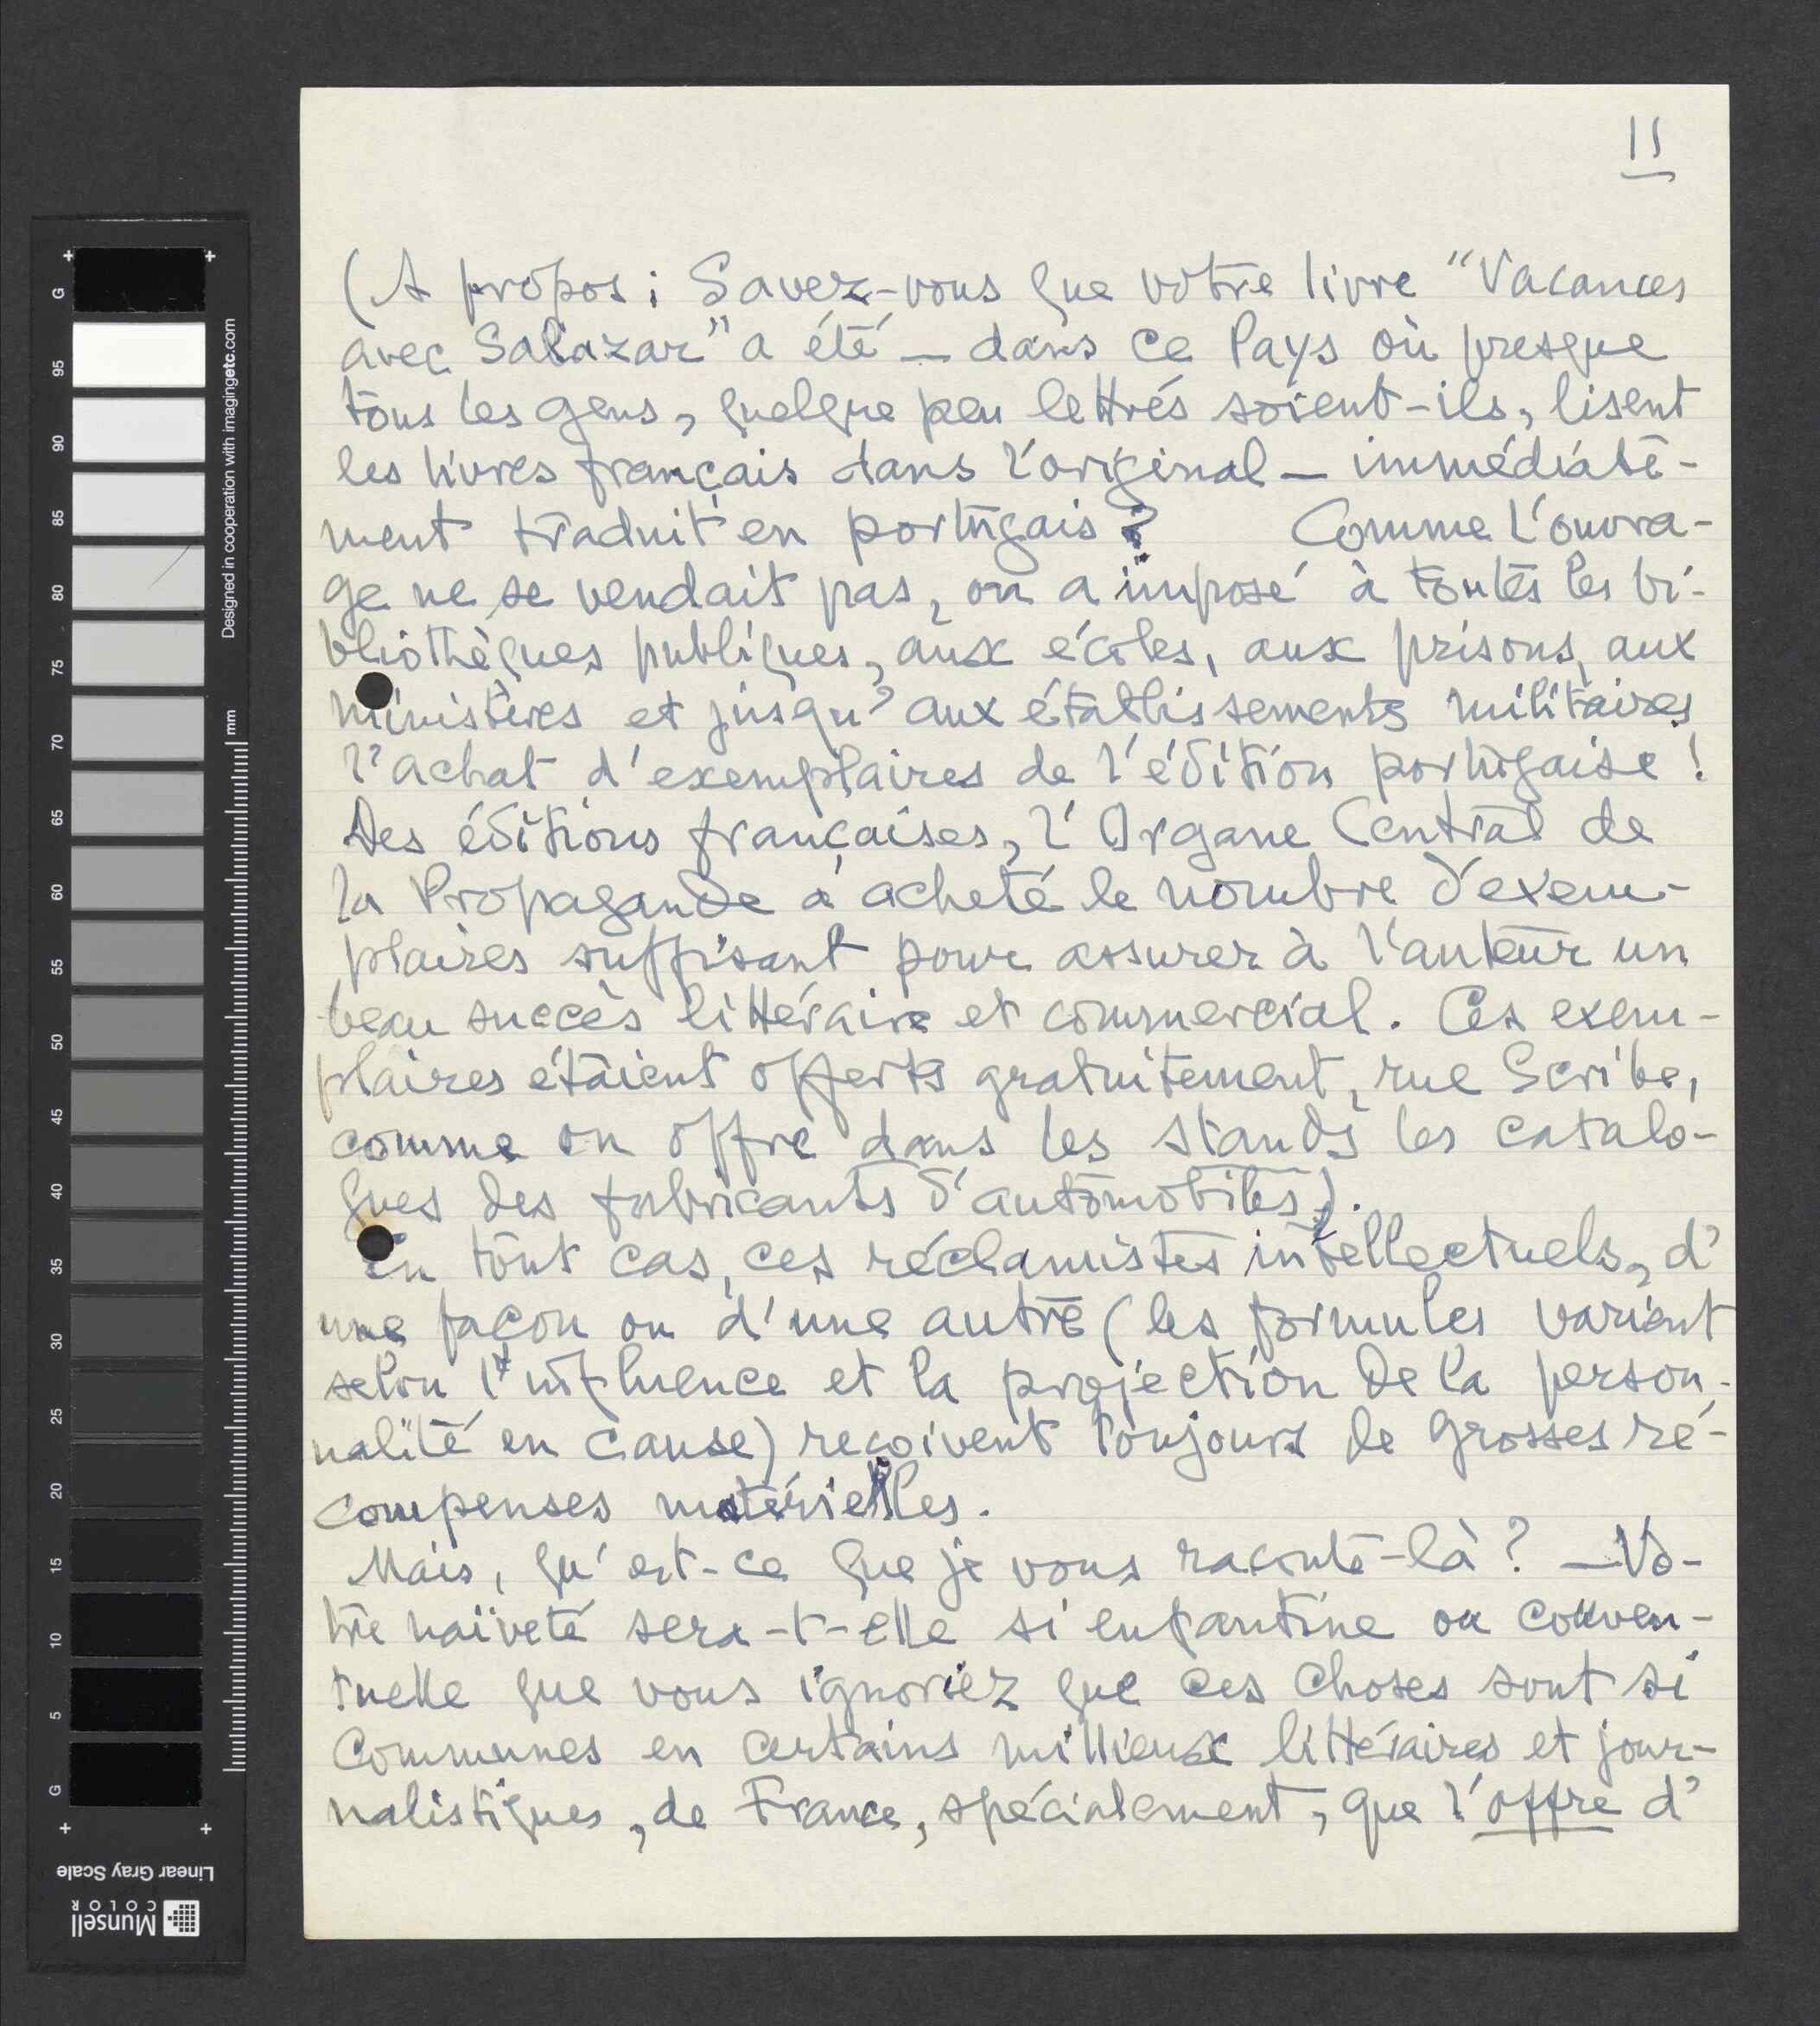 11
(A propos: Savez-vous que votre livre "Vacances
avec Salazar" a été — dans ce Pays où presque
tous les gens, quelque peu lettrés soient-ils, lisent
les livres français dans l'original — immédiate-
ment traduit en portugais? Comme l'ouvra-
ge ne se vendait pas, on a imposé à toutes les bi-
bliothèques publiques, aux écoles, aux prisons, aux
ministères et jusqu'aux établissements militaires
l'achat d'exemplaires de l'édition portugaise!
Des éditions françaises, l'Organe Central de
la Propagande a acheté le nombre d'exem-
plaires suffisant pour assurer à l'auteur un
beau succès littéraire et commercial. Ces exem-
plaires étaient offerts gratuitement, rue Scribe,
comme on offre dans les stands les catalo-
gues des fabricants d'automobiles).
En tout cas, ces réclamistes intellectuels, d'
une façon ou d'une autre (les formules varient
selon l'influence et la projection de la person-
nalité en cause) reçoivent toujours de grosses ré-
compenses matérielles.
Mais, qu'est-ce que je vous raconte-là? — Vo-
tre naïveté sera-t-elle si enfantine ou couven-
tuelle que vous ignoriez que ces choses sont si
communes en certains millieux littéraires et jour-
nalistiques, de France, spécialement, que l'offre d'
G
95
90
85
80
75
70
65
60
55
50
45
40
35
30
25
20
15
10
5
G
mm
Designed in cooperation with imagingetc.com
Linear Gray Scale
Munsell
COLOR